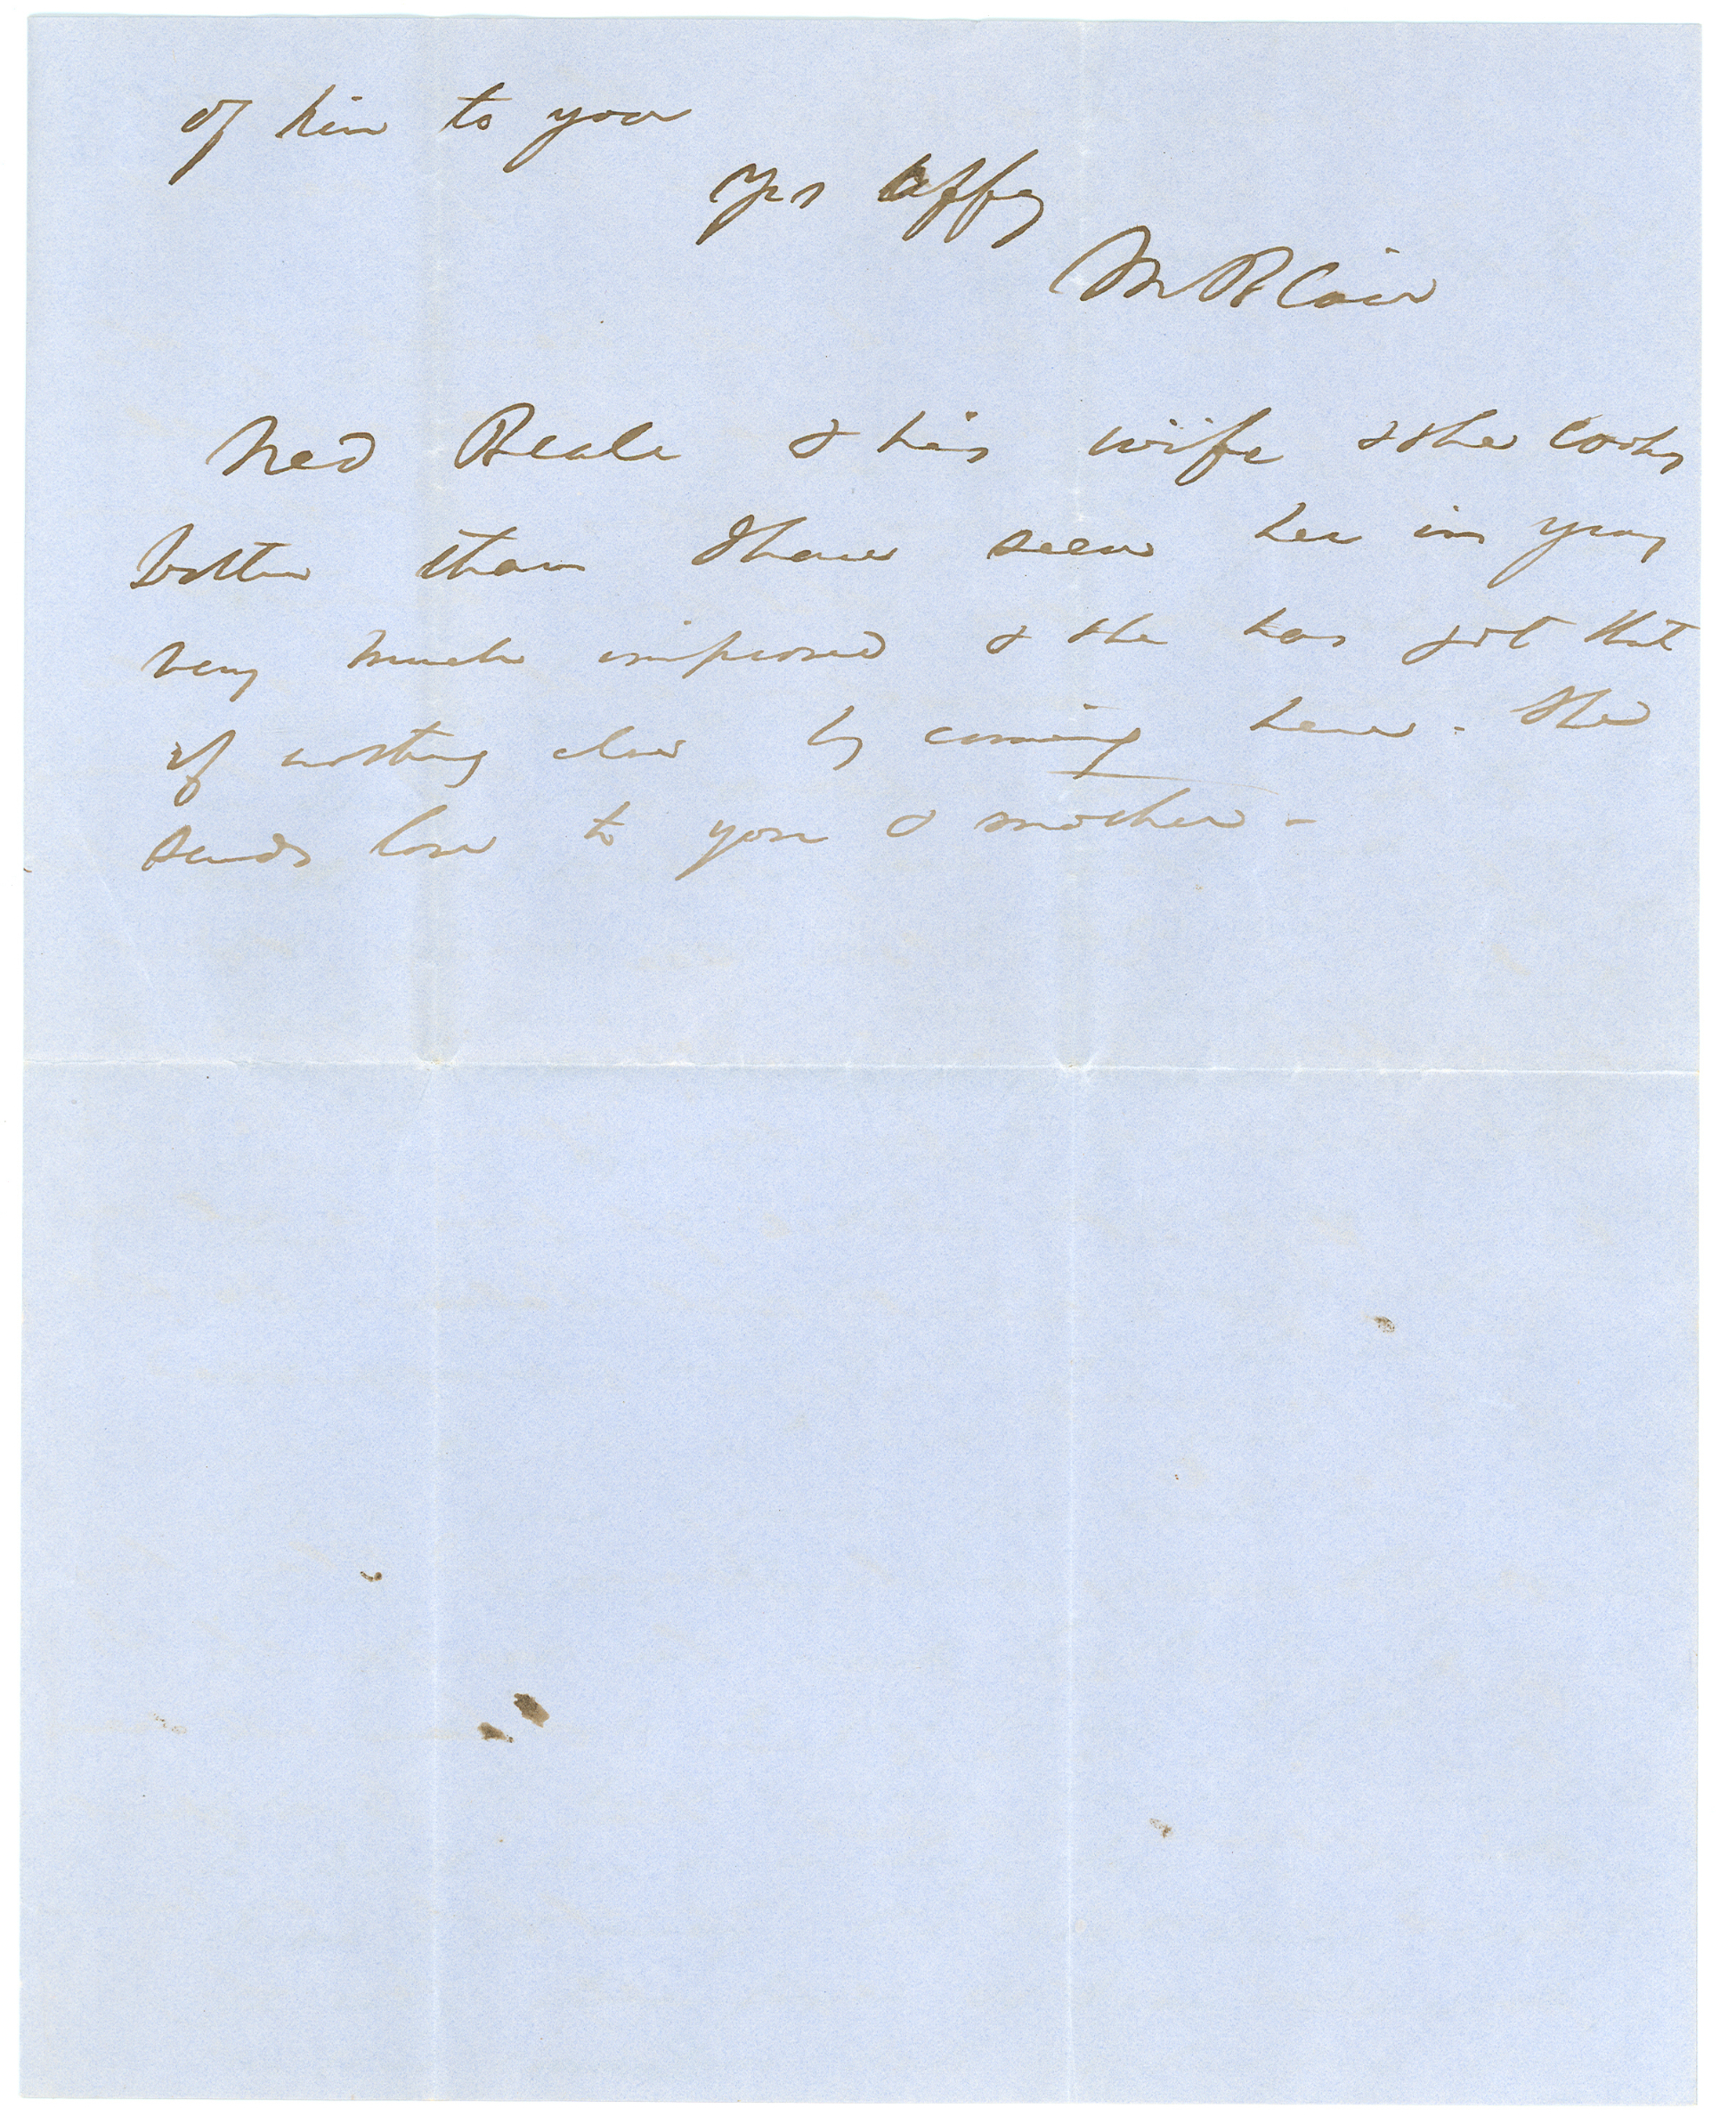 of him to you
Yrs affy
M Blair
Ned Beale & his wife & she looks
better than I have seen her in years
very much improved & she has got that
if nothing else by coming here. She
sends love to you & mother -